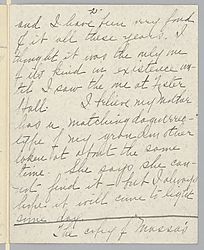 and I have been very fond
of it all these years. I
thought it was the only one
of its kind in existence un-
til I saw the one at Sister
Hall. I believe my mother
has a matching daguerreo-
type of my grandmother
taken at about the same
time. She says she can-
not find it — but I always
hope it will come to light
some day.
The copy of